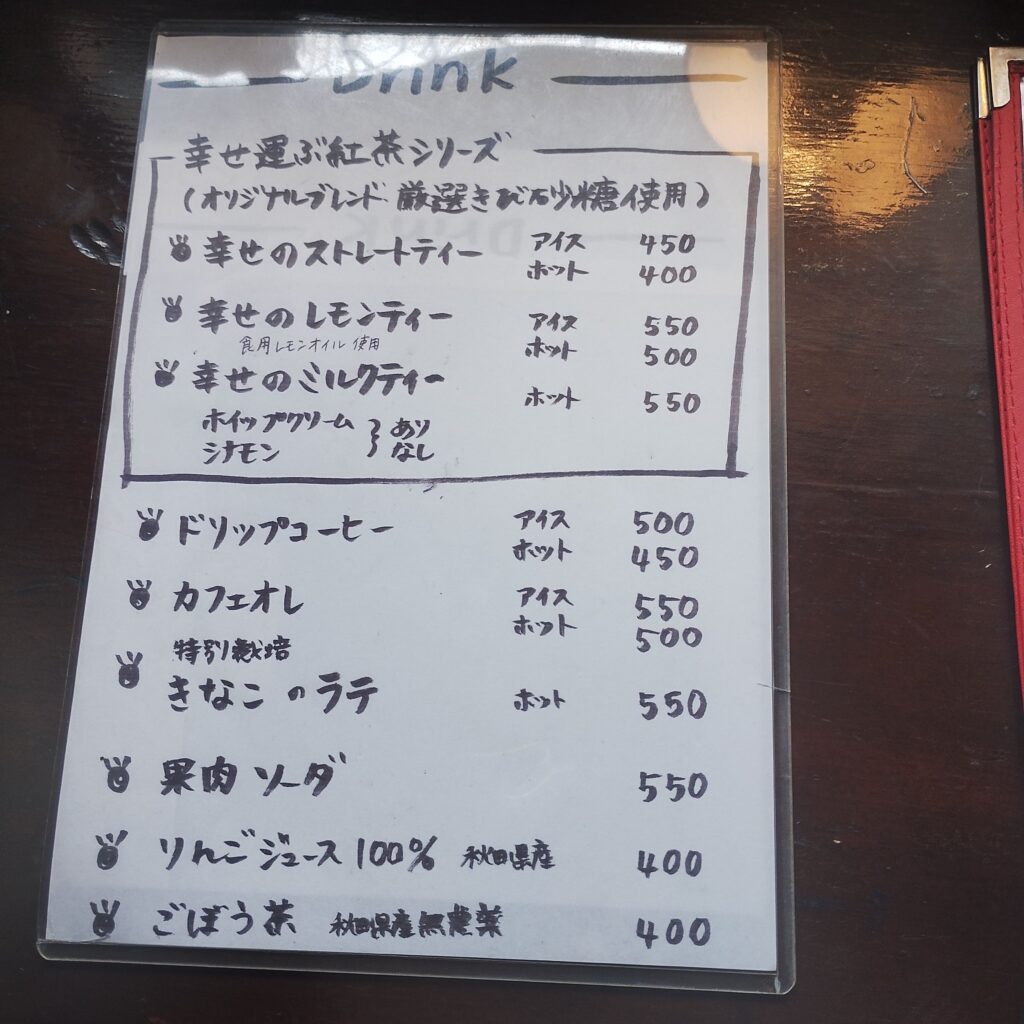 Drink
幸せ運ぶ紅茶シリーズ
(オリジナルブレンド 厳選きび砂糖使用)
幸せのストレートティー アイス 450
ホット 400
幸せのレモンティー アイス 550
食用レモンオイル使用 ホット 500
幸せのミルクティー ホット 550
ホイップクリーム あり
シナモン なし
ドリップコーヒー アイス 500
ホット 450
カフェオレ アイス 550
ホット 500
特別栽培
きなこのラテ ホット 550
果肉ソーダ 550
りんごジュース100% 秋田県産 400
ごぼう茶 秋田県産無農薬 400